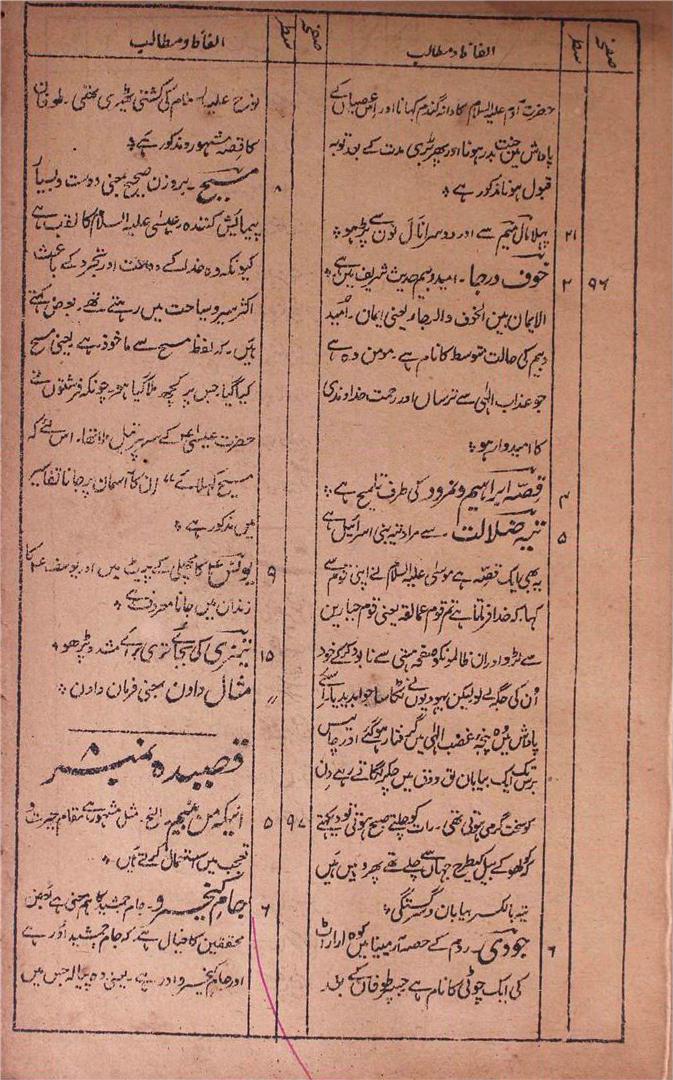 صفحہ سطر الفاظ و مطالب
حضرت آدم علیہ السلام کا دانہ گندم کھانا اور اس عصیاں کے
پاداش میں جنت بدر ہونا اور پھر بڑی مدت کے بعد توبہ
قبول ہونا مذکور ہے ؞
۲۱ پہلا مال میم سے اور دوسرا نال نون سے پڑھو ؞
۹۶ ۲ خوف و رجا۔ امید و بیم حدیث شریف میں ہے
الایمان بین الخوف والرجاء یعنی ایمان۔ امید
و بیم کی حالت متوسط کا نام ہے۔ مومن وہ ہے
جو عذاب الٰہی سے ترساں اور رحمت خداوندی
کا امیدوار ہو ؞
۴ قصہ ابراہیم و نمرود کی طرف تلمیح ہے ؞
۵ تیہ ضلالت۔ سے مراد تیہ بنی اسرائیل ہے
یہ بھی ایک قصہ ہے موسیٰ علیہ السلام نے اپنی قوم سے
کہا کہ خدا فرماتا ہے تم قوم عمالقہ یعنی قوم جبارین
سے لڑو اور ان ظالمونکو صفحہ ہستی سے نابود کرکے خود
اُن کی جگہ لے لو لیکن یہودیوں نے ٹکا سا جواب دیدیا۔ اسکے
پاداش میں وہ پنجہ غضب الٰہی میں گرفتار ہو گئے اور چالیس
برس تک ایک بیابان لق و دق میں چکر لگاتے رہے دن
کو سخت گرمی ہوتی تھی۔ رات کو چلتے صبح ہوتی تو دیکھتے
کہ کولھو کے بیل کیطرح جہاں سے چلے تھے پھر وہیں ہیں
تیہ بالکسر بیابان و سرگشتگی ؞
۶ جودی۔ روم کے حصہ آرمینیا میں کوہ ارارات
کی ایک چوٹی کا نام ہے جسپر طوفان کے بعد
صفحہ سطر الفاظ و مطالب
نوح علیہ السلام کی کشتی ٹھیری تھی۔ طوفان
کا قصہ مشہور و مذکور ہے ؞
۸ مسیح۔ بروزن صحیح بمعنی دوست و بسیار
پیمایش کنندہ۔ عیسیٰ علیہ السلام کا لقب ہے
کیونکہ وہ خدا کے دوست اور تجرد کے باعث
اکثر سیر و سیاحت میں رہتے تھے۔ بعض کہتے
ہیں۔ کہ لفظ مسیح سے ماخوذ ہے یعنی مسح
کیا گیا، جس پر کچھ ملا گیا ہو۔ چونکہ فرشتوں نے
حضرت عیسیٰؑ کے سر پر تیل ملا تھا۔ اس لئے کہ
مسیح کہلائے" ان کا آسمان پر جانا تفاسیر
میں مذکور ہے ؞
۹ یونسؑ کا مچھلی کے پیٹ میں اور یوسفؑ کا
زندان میں جانا معروف ہے ؞
۱۵ کی بجائے رے مشدد پڑھو ؞
〃 مثال دادن بمعنی فرمان دادن ؞
قصیدہ نمبر
۹۷ ۵ اینکہ می بینم۔ الخ۔ مثل مشہور ہے مقام حیرت و
تعجب میں استعمال کرتے ہیں ؞
۶ جام کیخسرو۔ جام جمشید کا ہم معنی ہے بعض
محققین کا خیال ہے کہ جام جمشید اور ہے
اور جام کیخسرو اور ہے۔ یعنی وہ پیالہ جس میں